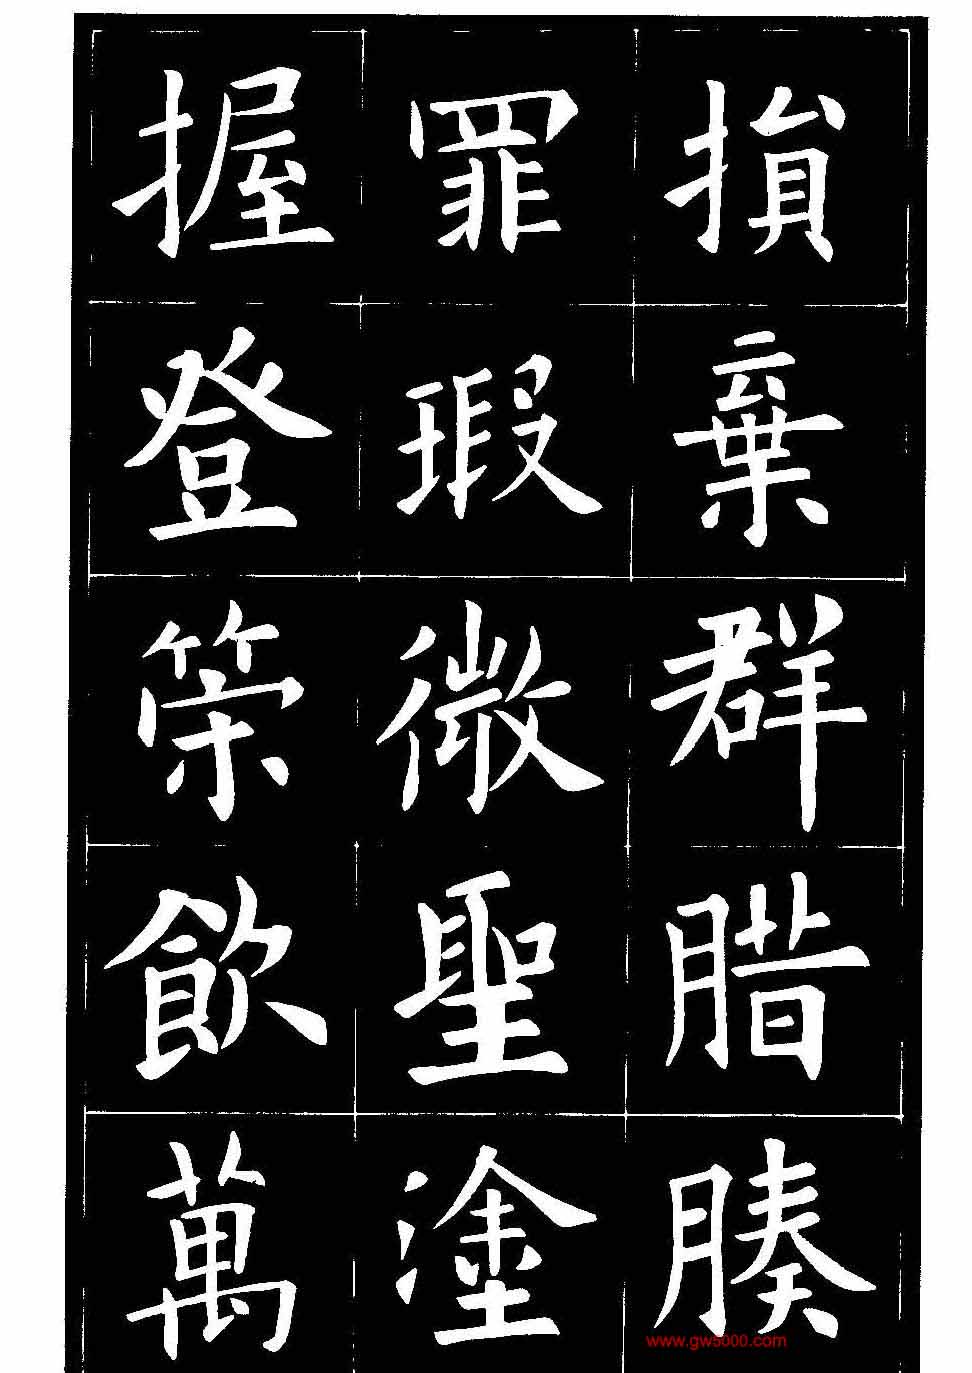 損棄群腊腠
罪瑕微聖塗
握登策飲萬
www.gw5000.com